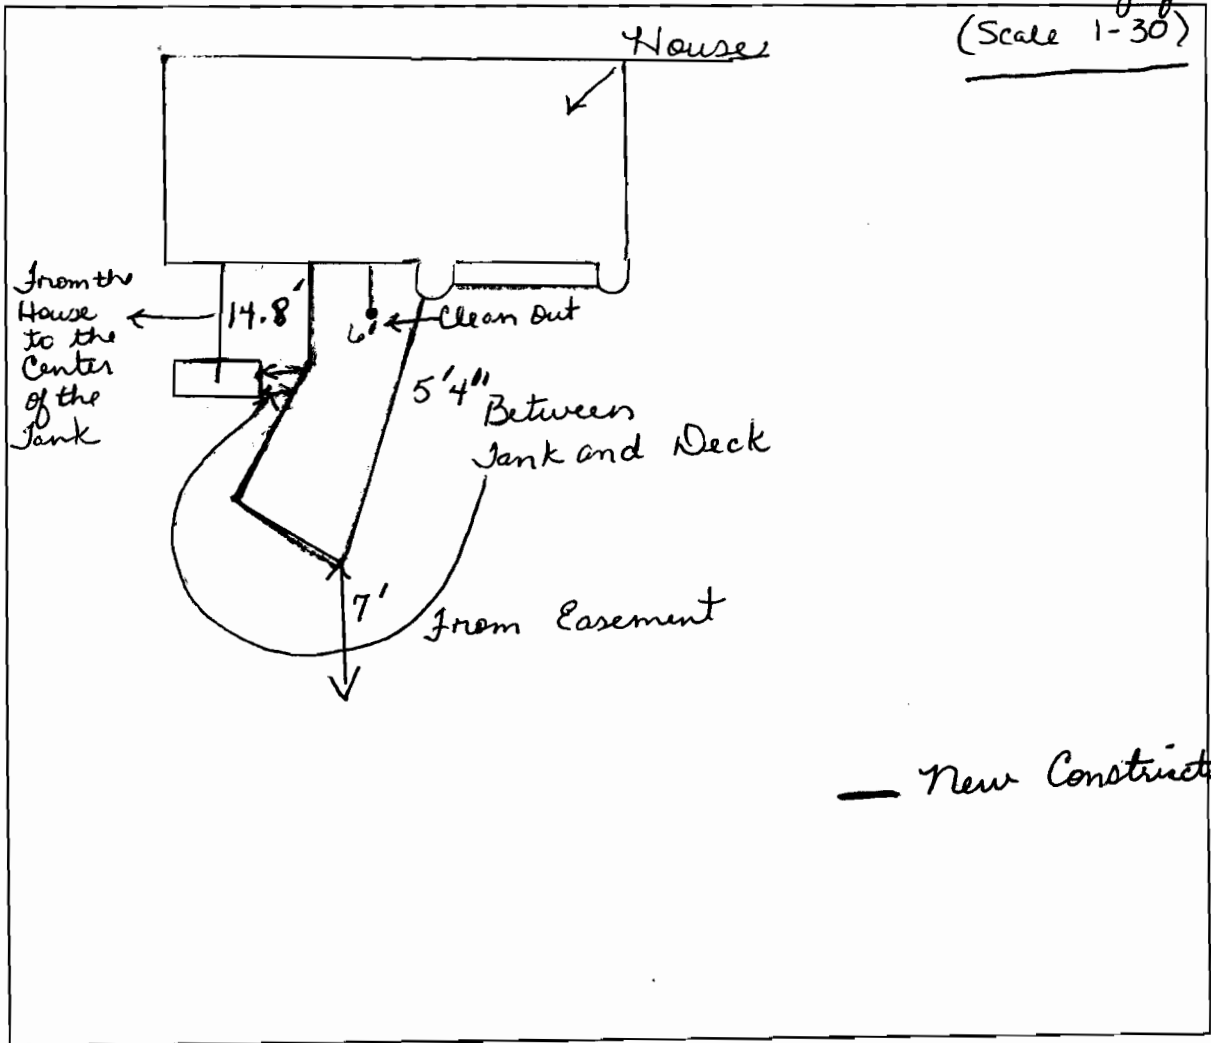 (Scale 1-30)
House
From the
House
to the
Center
of the
Tank
14.8'
6'
Clean out
5'4"
Between
Tank and Deck
7'
From Easement
New Construct